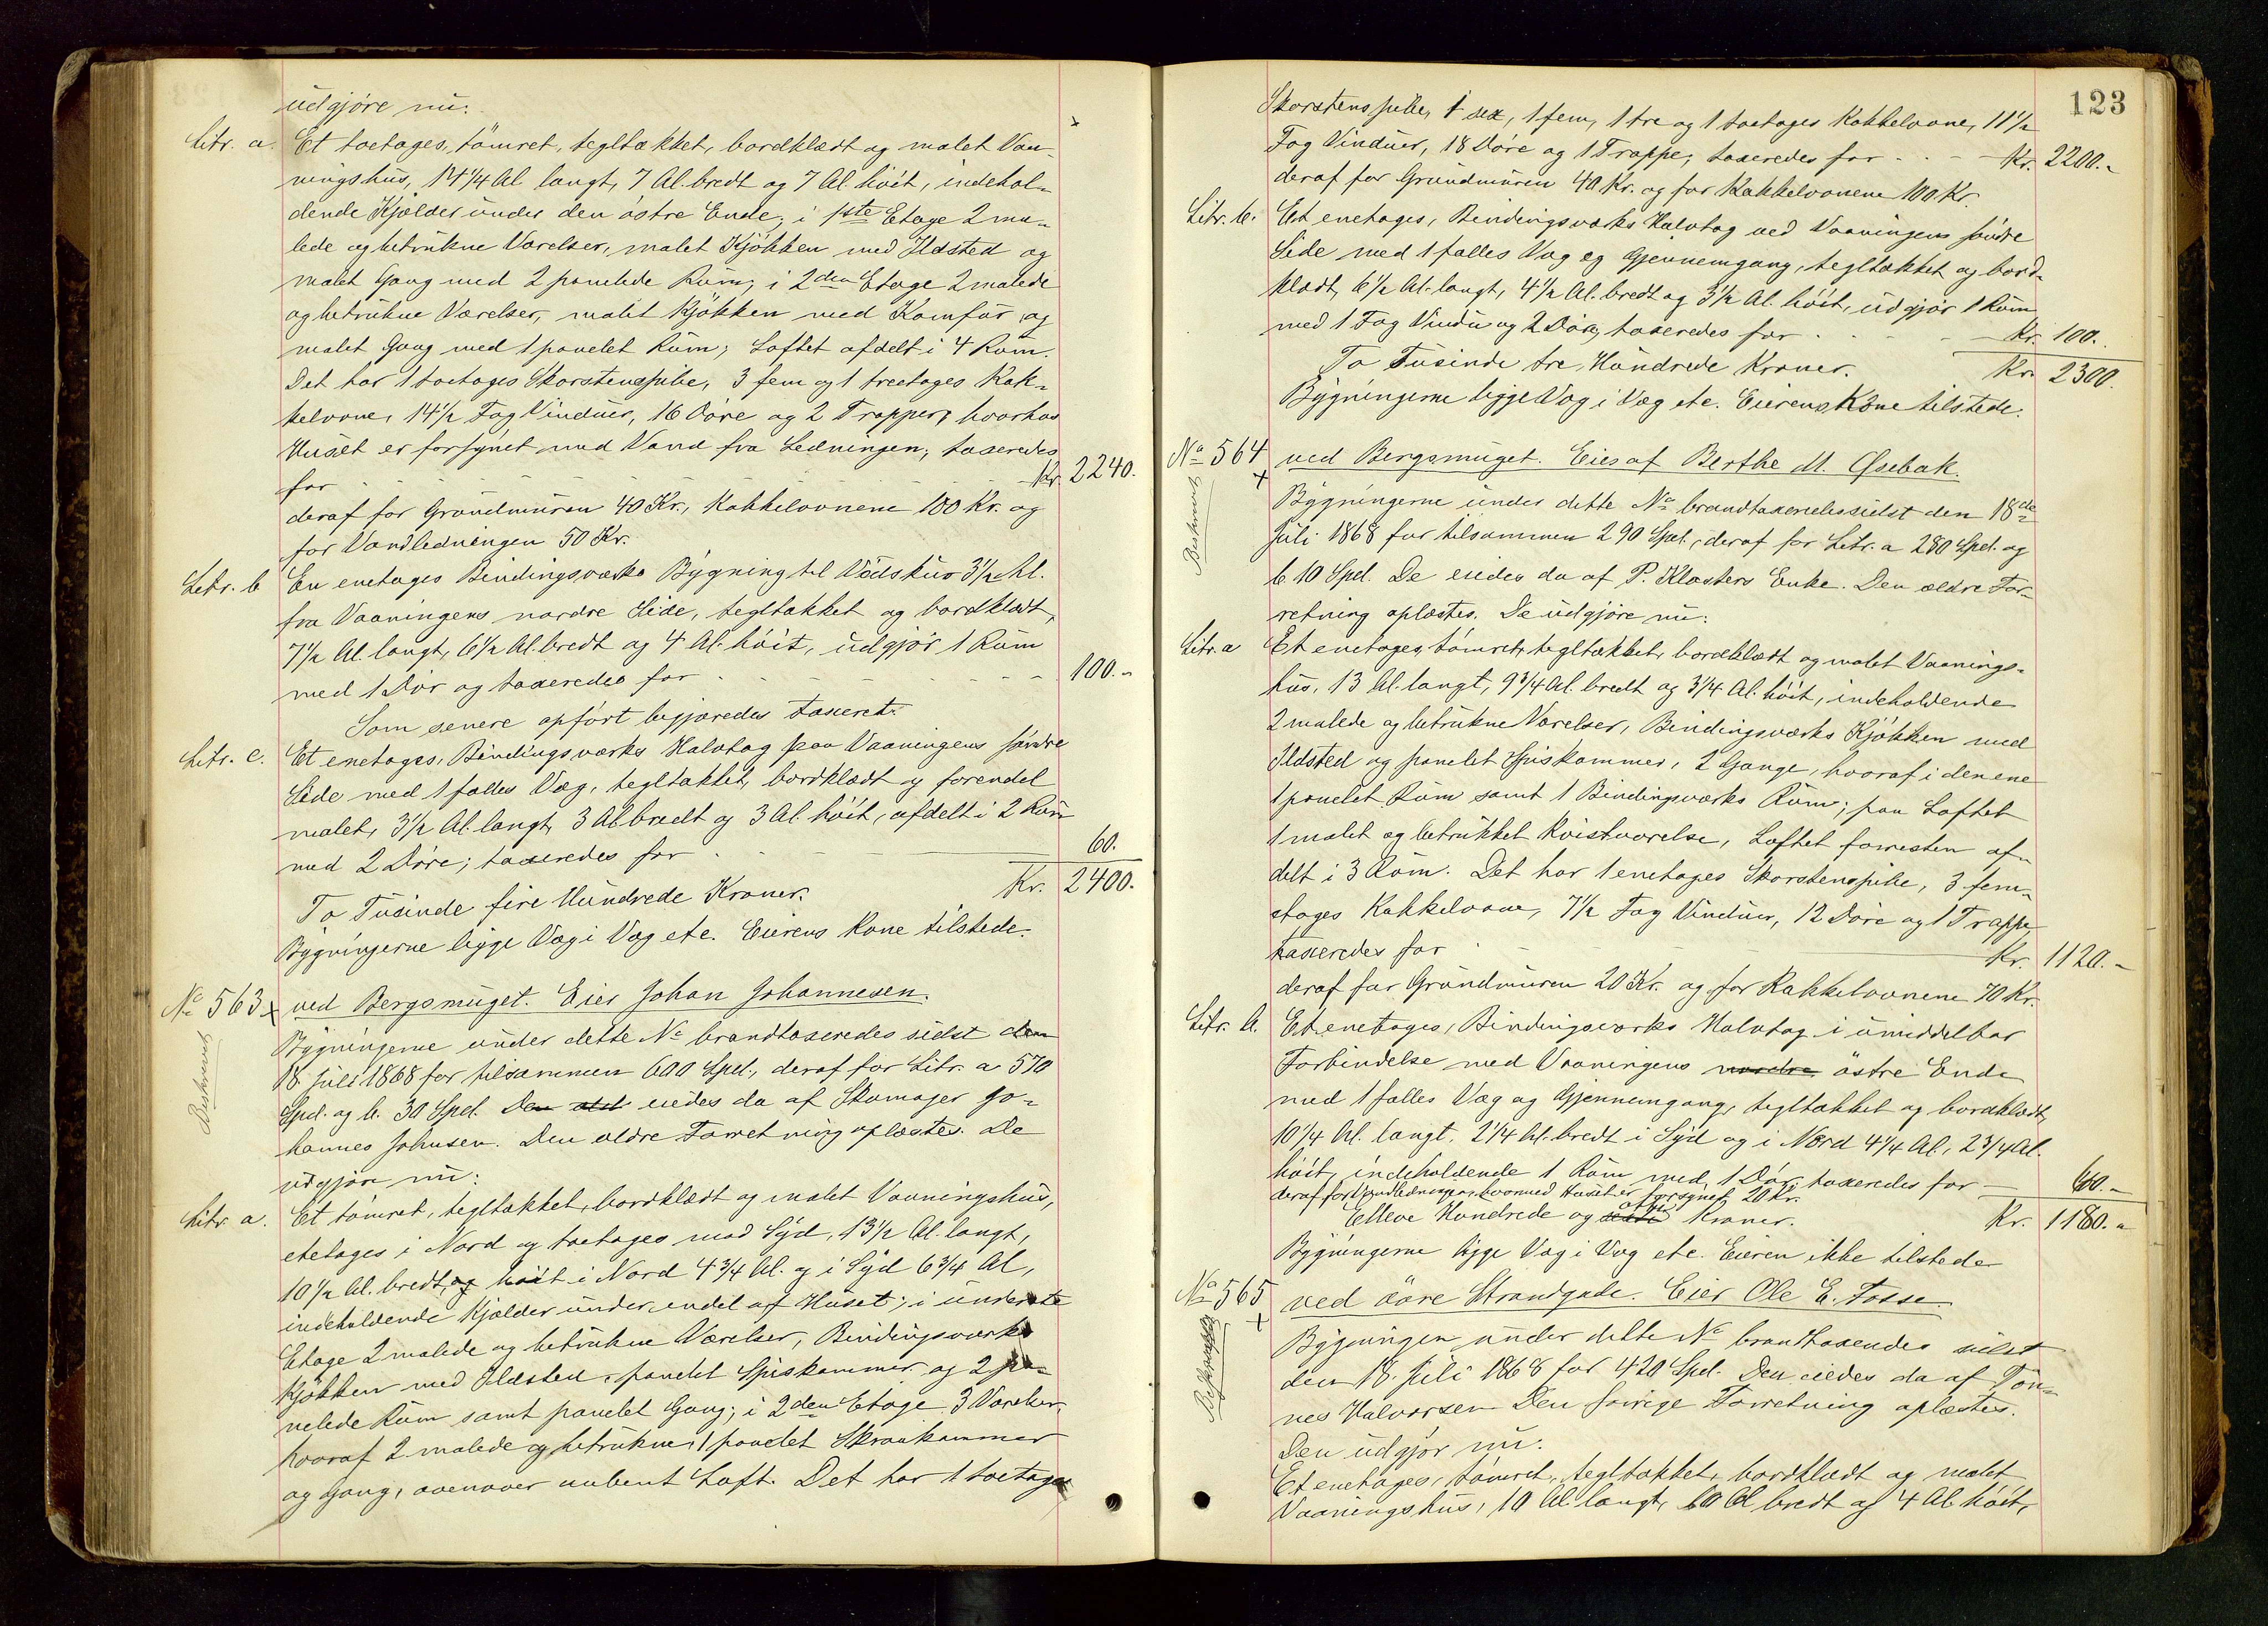 udgjøre nu:
Litr. a. Et toetages, tömret, tegltækket, bordklædt og malet Vaa-
ningshus, 14 1/4 Al. langt, 7 Al. bredt og 7 Al. höit, indehol-
dende Kjælder under den östre Ende; i 1ste Etage 2 ma-
lede og betrukne Værelser, malet Kjökken med Ildsted og
malet Gang med 2 panelede Rum; i 2den Etage 2 malede
og betrukne Værelser, malet Kjökken med Komfur og
malet Gang med 1 panelet Rum; Loftet afdelt i 4 Rum.
Det har 1 toetages Skorstenspibe, 3 fem og 1 treetages Kak-
kelovne, 14 1/2 Fag Vinduer, 16 Döre og 2 Trapper, hvorhos
Huset er forsynet med Vand fra Ledningen; taxeredes
for Kr. 2240.
deraf for Grundmuren 40 Kr., Kakkelovnene 100 Kr. og
for Vandledningen 50 Kr.
Litr. b En enetages Bindingsværks Bygning til Vedskur 3 1/2 Al.
fra Vaaningens nordre Side, tegltækket og bordklædt,
7 1/2 Al. langt, 6 1/2 Al. bredt og 4 Al. höit, udgjör 1 Rum
med 1 Dör og taxeredes for 100.-
Som senere opfört begjæredes taxeret:
Litr. c. Et enetages, Bindingsværks Halvtag paa Vaaningens söndre
Side med 1 fælles Væg, tegltækket, bordklædt og forendel
malet, 3 1/2 Al. langt, 3 Al. bredt og 3 Al. höit, afdelt i 2 Rum
med 2 Döre; taxeredes for 60.
To Tusinde fire Hundrede Kroner. Kr. 2400.
Bygningerne ligge Væg i Væg etc. Eierens Kone tilstede.
No 563 x ved Bergsmuget. Eier Johan Johannesen.
Beskrevet
Bygningerne under dette No brandtaxeredes sidst den
18 Juli 1868 for tilsammen 600 Spd., deraf for Litr. a 570
Spd. og b. 30 Spd. Den æld eiedes da af Skomager Jo-
hannes Johnsen. Den ældre Forretning oplæstes. De
udgjøre nu:
Litr. a. Et tömret, tegltækket, bordklædt og malet Vaaningshus,
etetages i Nord og toetages mod Syd, 13 1/2 Al. langt,
10 1/2 Al. bredt, og höit i Nord 4 3/4 Al. og i Syd 6 3/4 Al,
indeholdende Kjælder under endel af Huset; i underste
Etage 2 malede og betrukne Værelser, Bindingsværks
Kjökken med Ildsted, panelet Spiskammer og 2 pa-
nelede Rum samt panelet Gang; i 2den Etage 3 Værelser,
hvoraf 2 malede og betrukne, 1 panelet Skraakammer
og Gang, ovenover aabent Loft. Det har 1 toetages
123
Skorstenspibe, 1 sex, 1 fem, 1 tre og 1 toetages Kakkelovne, 11 1/2
Fag Vinduer, 18 Döre og 1 Trappe; taxeredes for Kr. 2200.-
deraf for Grundmuren 40 Kr. og for Kakkelovnene 100 Kr.
Litr. b. Et enetages, Bindingsværks Halvtag ved Vaaningens söndre
Side med 1 fælles Væg og Gjennemgang, tegltækket og bord-
klædt, 6 1/2 Al. langt, 4 1/2 Al. bredt og 3 1/2 Al. höit, udgjör 1 Rum
med 1 Fag Vindu og 2 Döre, taxeredes for Kr. 100.
To Tusinde tre Hundrede Kroner. Kr. 2300.
Bygningerne ligge Væg i Væg etc. Eierens Kone tilstede.
No 564 x ved Bergsmuget. Eies af Berthe M. Øsebak.
Beskrevet
Bygningerne under dette No brandtaxeredes sidst den 18de
Juli 1868 for tilsammen 290 Spd., deraf for Litr. a 280 Spd. og
b 10 Spd. De eiedes da af P. Klosters Enke. Den ældre For-
retning oplæstes. De udgjøre nu:
Litr. a Et enetages, tömret, tegltækket, bordklædt og malet Vaanings-
hus, 13 Al. langt, 9 3/4 Al. bredt og 3 3/4 Al. höit, indeholdende
2 malede og betrukne Værelser, Bindingsværks Kjökken med
Ildsted og panelet Spiskammer, 2 Gange, hvoraf i den ene
1 panelet Rum samt 1 Bindingsværks Rum; paa Loftet
1 malet og betrukket Kvistværelse, Loftet forresten af-
delt i 3 Rum. Det har 1 enetages Skorstenspibe, 3 fem-
etages Kakkelovne, 7 1/2 Fag Vinduer, 12 Döre og 1 Trappe,
taxeredes for Kr. 1120.-
deraf for Grundmuren 20 Kr. og for Kakkelovnene 70 Kr.
Litr. b. Et enetages, Bindingsværks Halvtag i umiddelbar
Forbindelse med Vaaningens nordre östre Ende
med 1 fælles Væg og Gjennemgang, tegltækket og bordklædt,
10 1/4 Al. langt, 2 1/4 Al. bredt i Syd og i Nord 4 1/4 Al., 2 3/4 Al.
höit, indeholdende 1 Rum med 1 Dör, taxeredes for 60.-
deraf for Vandledningen, hvormed Huset er forsynet, 20 Kr.
Elleve Hundrede og otti Kroner. Kr. 1180.-
Bygningerne ligge Væg i Væg etc. Eieren ikke tilstede
No 565 x ved övre Strandgade. Eier Ole E. Fosse.
Beskrevet
Bygningen under dette No brandtaxeredes sidst
den 18. Juli 1868 for 420 Spd. Den eiedes da af Tön-
nes Halvorsen. Den forrige Forretning oplæstes.
Den udgjör nu:
Et enetages, tömret, tegltækket, bordklædt og malet
Vaaningshus, 10 Al. langt, 10 Al bredt og 4 Al. höit,